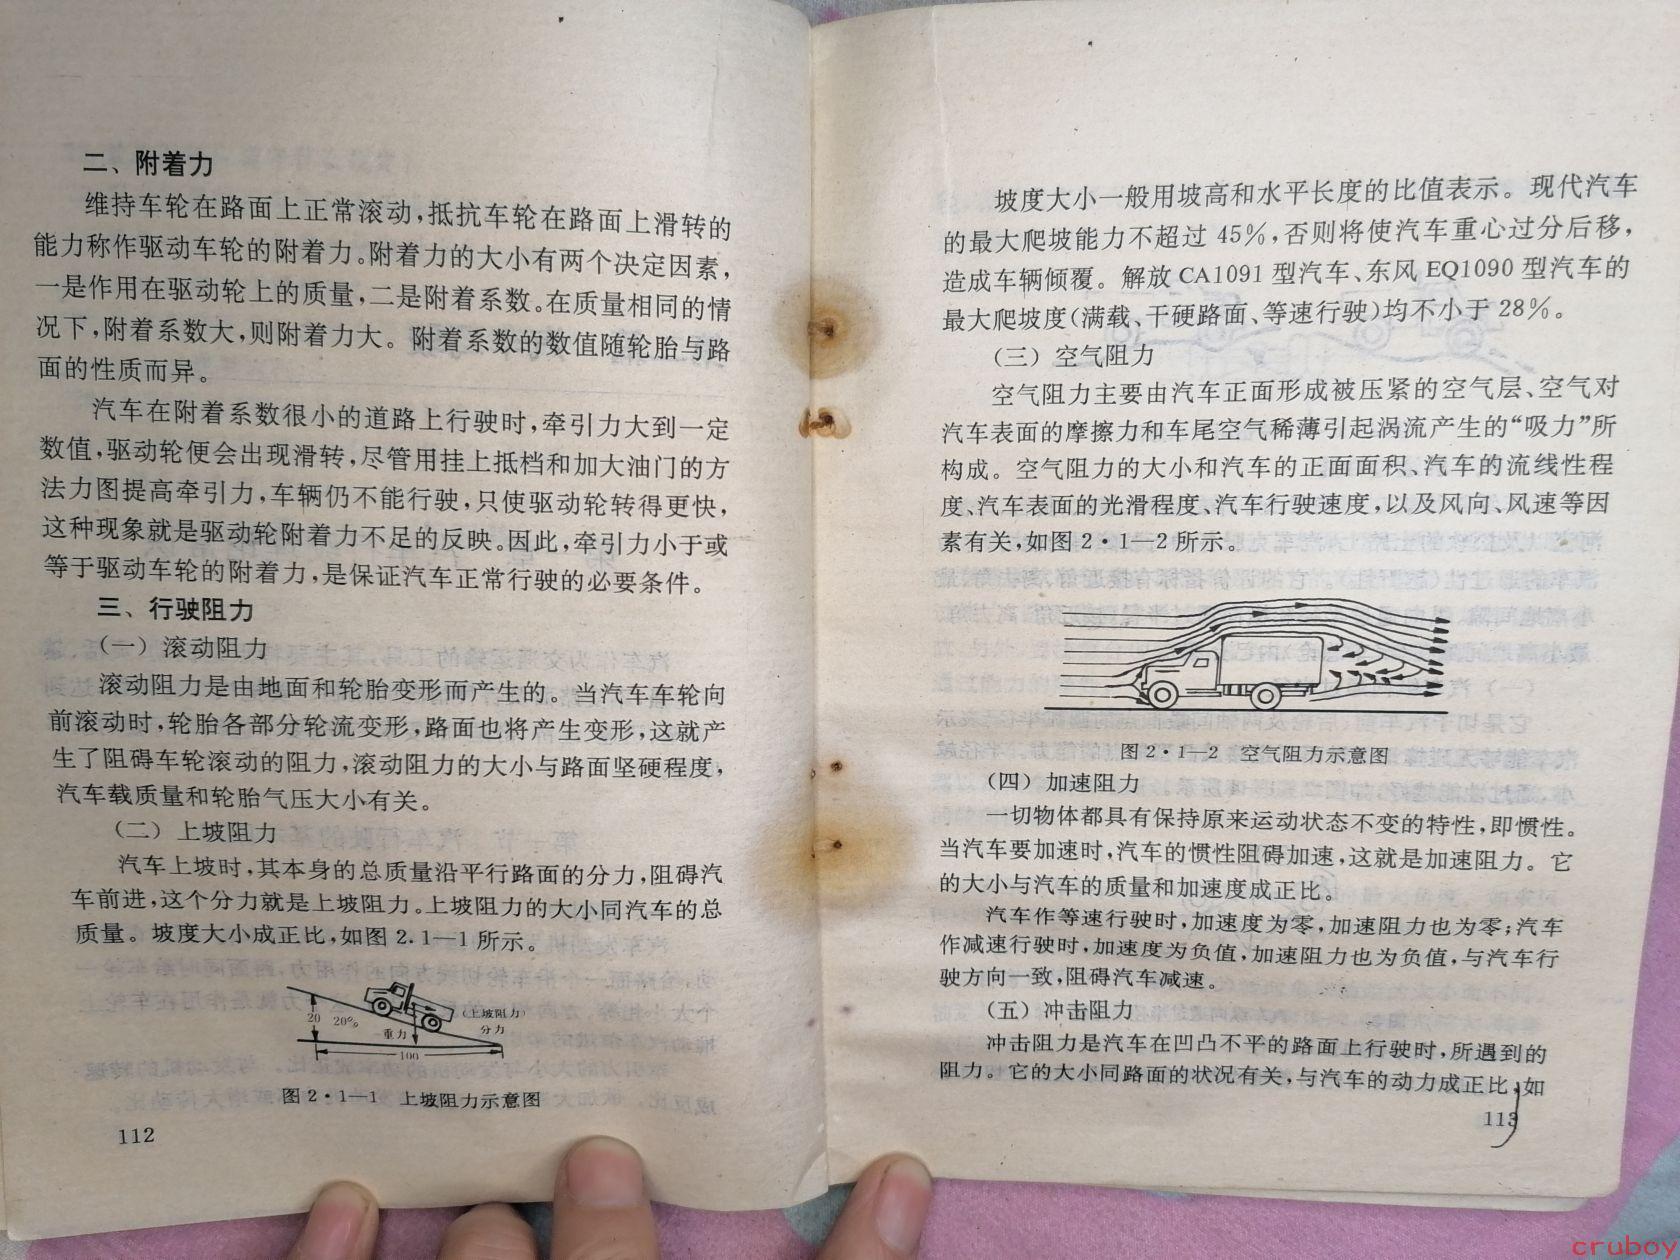 二、附着力
维持车轮在路面上正常滚动,抵抗车轮在路面上滑转的
能力称作驱动车轮的附着力。附着力的大小有两个决定因素,
一是作用在驱动轮上的质量,二是附着系数。在质量相同的情
况下,附着系数大,则附着力大。附着系数的数值随轮胎与路
面的性质而异。
汽车在附着系数很小的道路上行驶时,牵引力大到一定
数值,驱动轮便会出现滑转,尽管用挂上抵档和加大油门的方
法力图提高牵引力,车辆仍不能行驶,只使驱动轮转得更快,
这种现象就是驱动轮附着力不足的反映。因此,牵引力小于或
等于驱动车轮的附着力,是保证汽车正常行驶的必要条件。
三、行驶阻力
(一)滚动阻力
滚动阻力是由地面和轮胎变形而产生的。当汽车车轮向
前滚动时,轮胎各部分轮流变形,路面也将产生变形,这就产
生了阻碍车轮滚动的阻力,滚动阻力的大小与路面坚硬程度,
汽车载质量和轮胎气压大小有关。
(二)上坡阻力
汽车上坡时,其本身的总质量沿平行路面的分力,阻碍汽
车前进,这个分力就是上坡阻力。上坡阻力的大小同汽车的总
质量。坡度大小成正比,如图2.1—1所示。
20
20%
重力
(上坡阻力)
分力
100
图2·1—1 上坡阻力示意图
112
坡度大小一般用坡高和水平长度的比值表示。现代汽车
的最大爬坡能力不超过45%,否则将使汽车重心过分后移,
造成车辆倾覆。解放CA1091型汽车、东风EQ1090型汽车的
最大爬坡度(满载、干硬路面、等速行驶)均不小于28%。
(三)空气阻力
空气阻力主要由汽车正面形成被压紧的空气层、空气对
汽车表面的摩擦力和车尾空气稀薄引起涡流产生的“吸力”所
构成。空气阻力的大小和汽车的正面面积、汽车的流线性程
度、汽车表面的光滑程度、汽车行驶速度,以及风向、风速等因
素有关,如图2·1—2所示。
图2·1—2 空气阻力示意图
(四)加速阻力
一切物体都具有保持原来运动状态不变的特性,即惯性。
当汽车要加速时,汽车的惯性阻碍加速,这就是加速阻力。它
的大小与汽车的质量和加速度成正比。
汽车作等速行驶时,加速度为零,加速阻力也为零;汽车
作减速行驶时,加速度为负值,加速阻力也为负值,与汽车行
驶方向一致,阻碍汽车减速。
(五)冲击阻力
冲击阻力是汽车在凹凸不平的路面上行驶时,所遇到的
阻力。它的大小同路面的状况有关,与汽车的动力成正比,如
113
cruboy